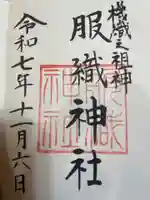 機織之祖神
服織神社
令和七年十一月六日